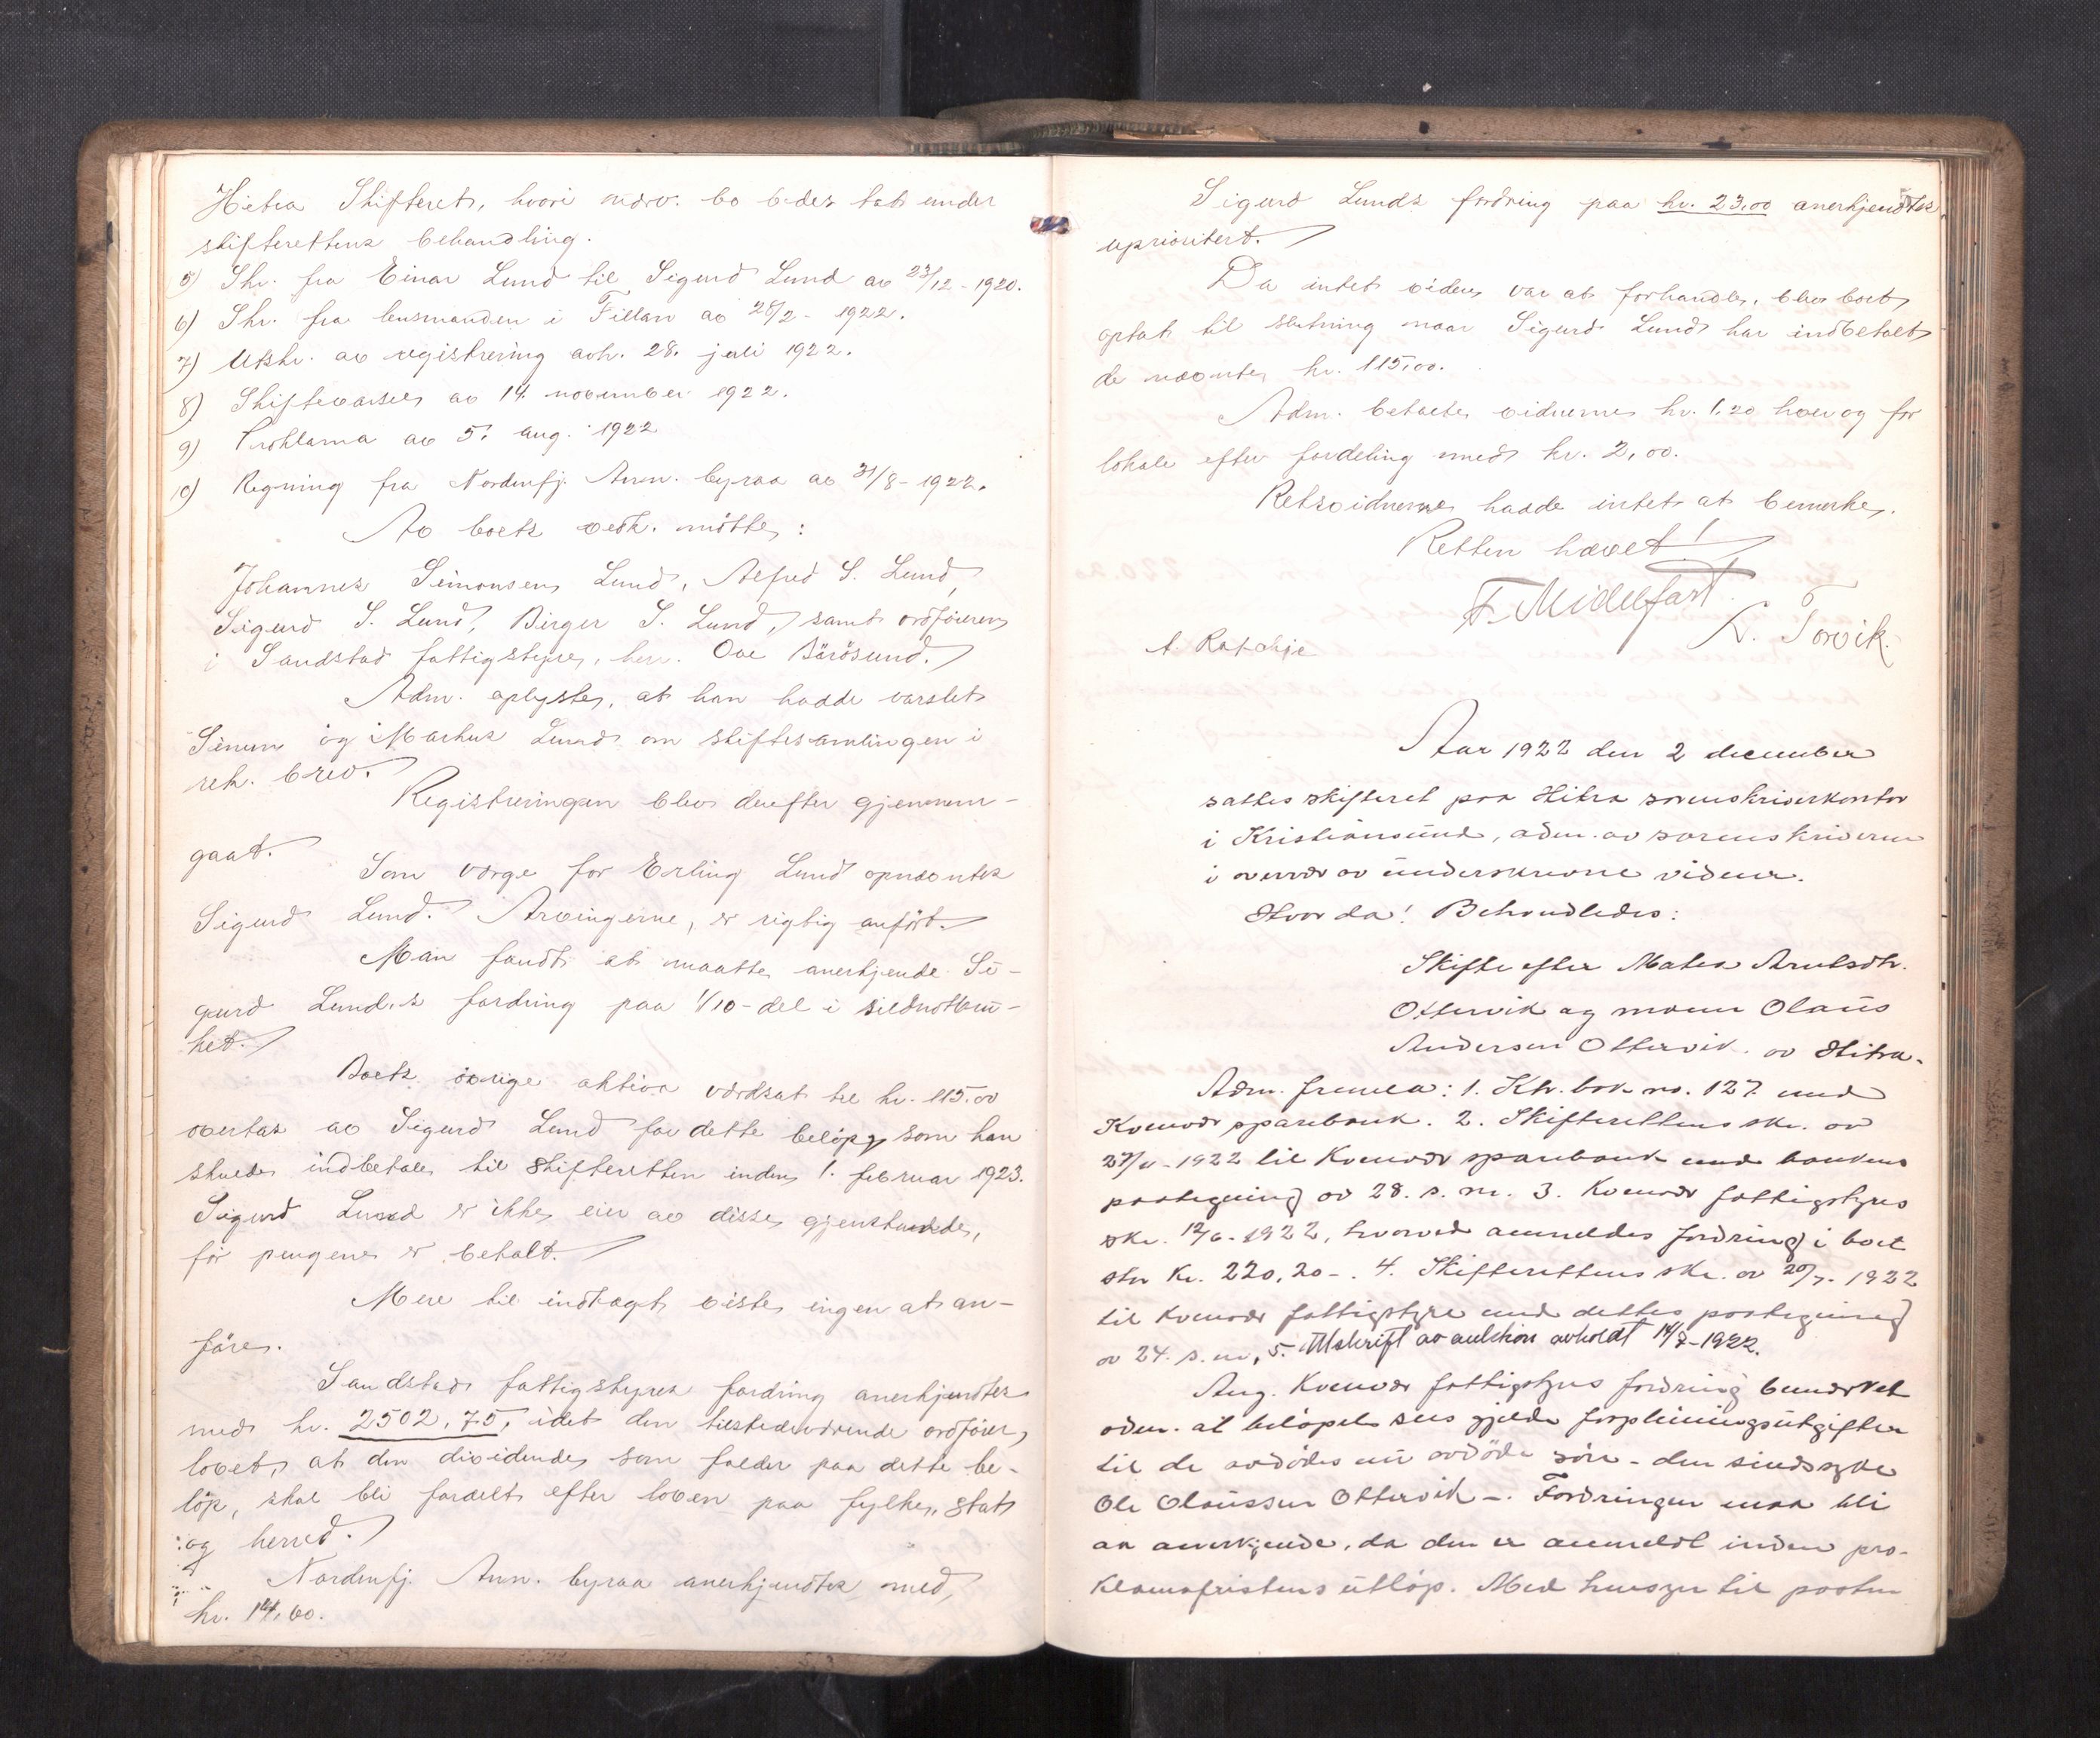 Hitra Skifteret, hvori nærv. bo bedes tat under
skifterettens behandling.
5) Skr. fra Einar Lund til Sigurd Lund av 23/12 - 1920.
6) Skr. fra lensmanden i Fillan av 28/2 - 1922.
7) Utskr. av registrering avh. 28. juli 1922.
8) Skiftevarsel av 14. november 1922.
9) Proklama av 5. aug. 1922
10) Regning fra Nordenfj. Ann. byraa av 31/8 - 1922.
Av boets vedk. mötte:
Johannes Simonsen Lund, Alfred S. Lund,
Sigurd S. Lund, Birger S. Lund, samt ordföreren
i Sandstad fattigstyre, herr. Ove Börösund.
Adm. oplyste, at han hadde varslet
Simon og Markus Lund om skiftesamlingen i
rek. brev.
Registreringen blev derefter gjennem-
gaat.
Som værge for Erling Lund opnævntes
Sigurd Lund. Arvingerne, er rigtig anfört.
Man fandt at maatte anerkjende Si-
gurd Lund's fordring paa 1/10-del i sildnotbru-
ket.
Boets övrige aktiva værdsat til kr. 115.00
overtas av Sigurd Lund for dette belöp, som han
skulde indbetale til skifteretten inden 1. februar 1923.
Sigurd Lund er ikke eier av disse gjenstande,
för pengene er betalt.
Mere til indtægt viste ingen at an-
före.
Sandstad fattigstyres fordring anerkjendtes
med kr. 2502,75, idet den tilstedeværende ordförer,
lovet, at den dividende som falder paa dette be-
löp, skal bli fordelt efter loven paa fylke, stat
og herred.
Nordenfj. Ann. byraa anerkjendtes med,
kr. 14,60.
Sigurd Lunds fordring paa kr. 23,00 anerkjendtes
uprioritert.
Da intet videre var at forhandle, blev boet
optat til slutning naar Sigurd Lund har indbetalt
de nævnte kr. 115,00.
Adm. betalte vidnerne kr. 1,20 hver og for
lokale efter fordeling med kr. 2,00.
Retsvidnerne hadde intet at bemerke.
Retten hævet!
F. Midelfart.
A. Ratchje L. Torvik.
Aar 1922 den 2 december
sattes skifteret paa Hitra sorenskriverkontor
i Kristiansund, adm. av sorenskriveren
i overvær av underskrevne vidner.
Hvor da! Behandledes:
Skifte efter Matea Arntsdtr.
Ottervik og mann Olaus
Andersen Ottervik av Hitra.
Adm. fremla: 1. Ktr. bok no. 127 med
Kvenvær sparebank. 2. Skifterettens skr. av
27/11 - 1922 til Kvenvær sparebank med bankens
paategning av 28. s. m. 3. Kvenvær fattigstyres
skr. 12/6 - 1922, hvorved anmeldes fordring i boet
stor Kr. 220,20 -. 4. Skifterettens skr. av 20/7 - 1922
til Kvenvær fattigstyre med dettes paategning
av 24. s. m, 5. Utskrift av auktion avholdt 14/7-1922.
Ang. Kvenvær fattigstyres fordring bemerket
adm. at belöpet sees gjelde forpleiningsutgifter
til de avdödes nu avdöde sön - den sindssyke
Ole Olaussen Ottervik -. Fordringen maa bli
aa anerkjende, da den er anmeldt inden pro-
klamafristens utlöp. Med hensyn til posten